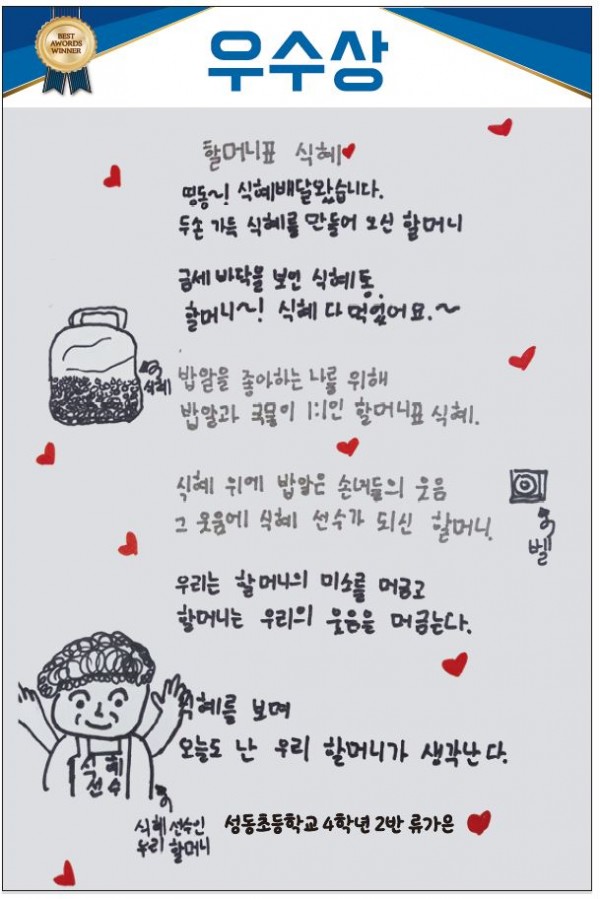 BEST
AWORDS
WINNER
우수상
할머니표 식혜
띵동~! 식혜배달왔습니다.
두손 가득 식혜를 만들어 오신 할머니
금세 바닥을 보인 식혜통.
할머니~! 식혜 다 먹었어요.~
식혜
밥알을 좋아하는 나를 위해
밥알과 국물이 1:1인 할머니표 식혜.
식혜 위에 밥알은 손녀들의 웃음
그 웃음에 식혜 선수가 되신 할머니.
벨
우리는 할머니의 미소를 머금고
할머니는 우리의 웃음을 머금는다.
식혜를 보며
오늘도 난 우리 할머니가 생각난다.
식혜
선수
식혜 선수인
우리 할머니
성동초등학교 4학년 2반 류가은